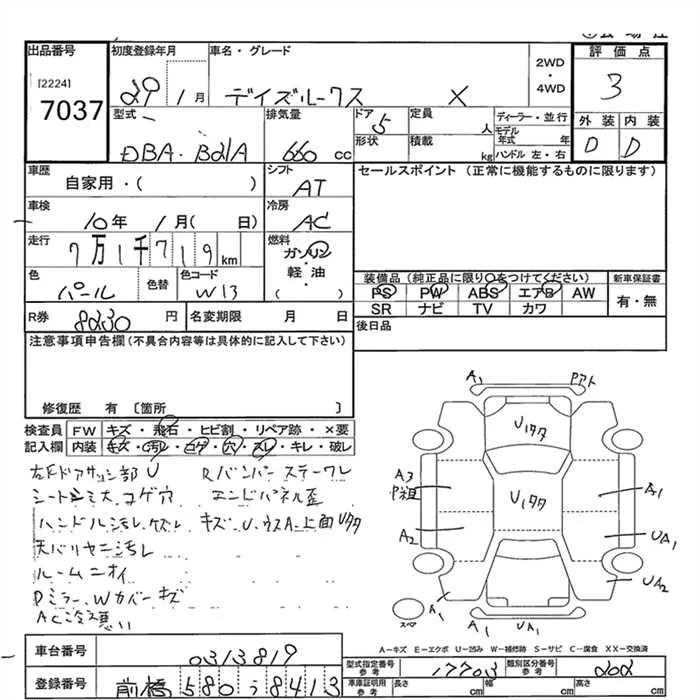 出品番号
[2224]
7037
初度登録年月
29 1月
車名・グレード
デイズルークス X
2WD
・
4WD
評価点
3
外装 内装
D D
型式
DBA・B21A
排気量
660 cc
ドア
5
形状
定員
人
積載
kg
ディーラー・並行
モデル年式 年
ハンドル 左・右
車歴
自家用・( )
シフト
AT
セールスポイント (正常に機能するものに限ります)
車検
10年 1月( 日)
冷房
AC
走行
7万1千719km
燃料
ガソリン
軽油
( )
色
パール
色替
色コード
W13
装備品 (純正品に限り○をつけてください)
PS PW ABS エアB AW
SR ナビ TV カワ
新車保証書
有・無
R券 8230 円
名変期限 月 日
後日品
注意事項申告欄(不具合内容等は具体的に記入して下さい)
修復歴 有 〔箇所 〕
検査員
記入欄
FW キズ・飛石・ヒビ割・リペア跡・×要
内装 キズ・汚レ・コゲ・穴・スレ・キレ・破レ
左Fドアサッシ部U
シートシミ大、コゲ穴
ハンドル汚レ、ケズレ
天バリヤニ汚レ
ルームニオイ
Dミラー、Wカバーキズ
AC冷え悪い
Rバンパーステーワレ
エンドパネル歪
キズ、U、
上面Uタタ
A1
Pアト
U1タタ
A3
U1タタ
A1
A2
UA1
UA2
A1
A1
UA1
スペア
A-キズ E-エクボ U-凹み W-補修跡 S-サビ C-腐食 XX-交換済
車台番号
0313819
登録番号
前橋 580 う 8413
型式指定番号
参考
17703
類別区分番号
参考
202
車庫証明用
参考
長さ cm 幅 cm 高さ cm